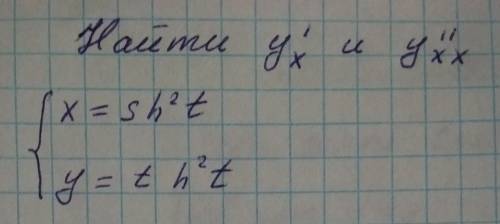 Найти y'ₓ и y''ₓₓ
{ x = sh²t
y = t h²t